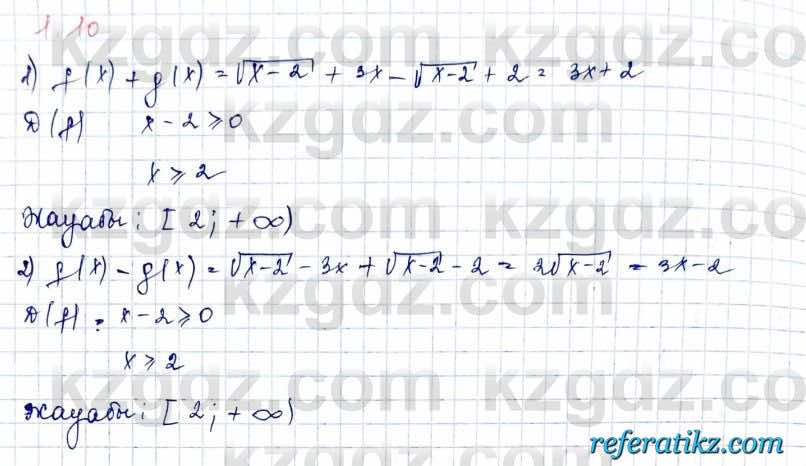 1.10
1) f(x) + g(x) = √x-2 + 3x - √x-2 + 2 = 3x + 2
D(f) x - 2 ≥ 0
x ≥ 2
Жауабы: [2; +∞)
2) f(x) - g(x) = √x-2 - 3x + √x-2 - 2 = 2√x-2 - 3x - 2
D(f): x - 2 ≥ 0
x ≥ 2
Жауабы: [2; +∞)
kzgdz.com
referatikz.com